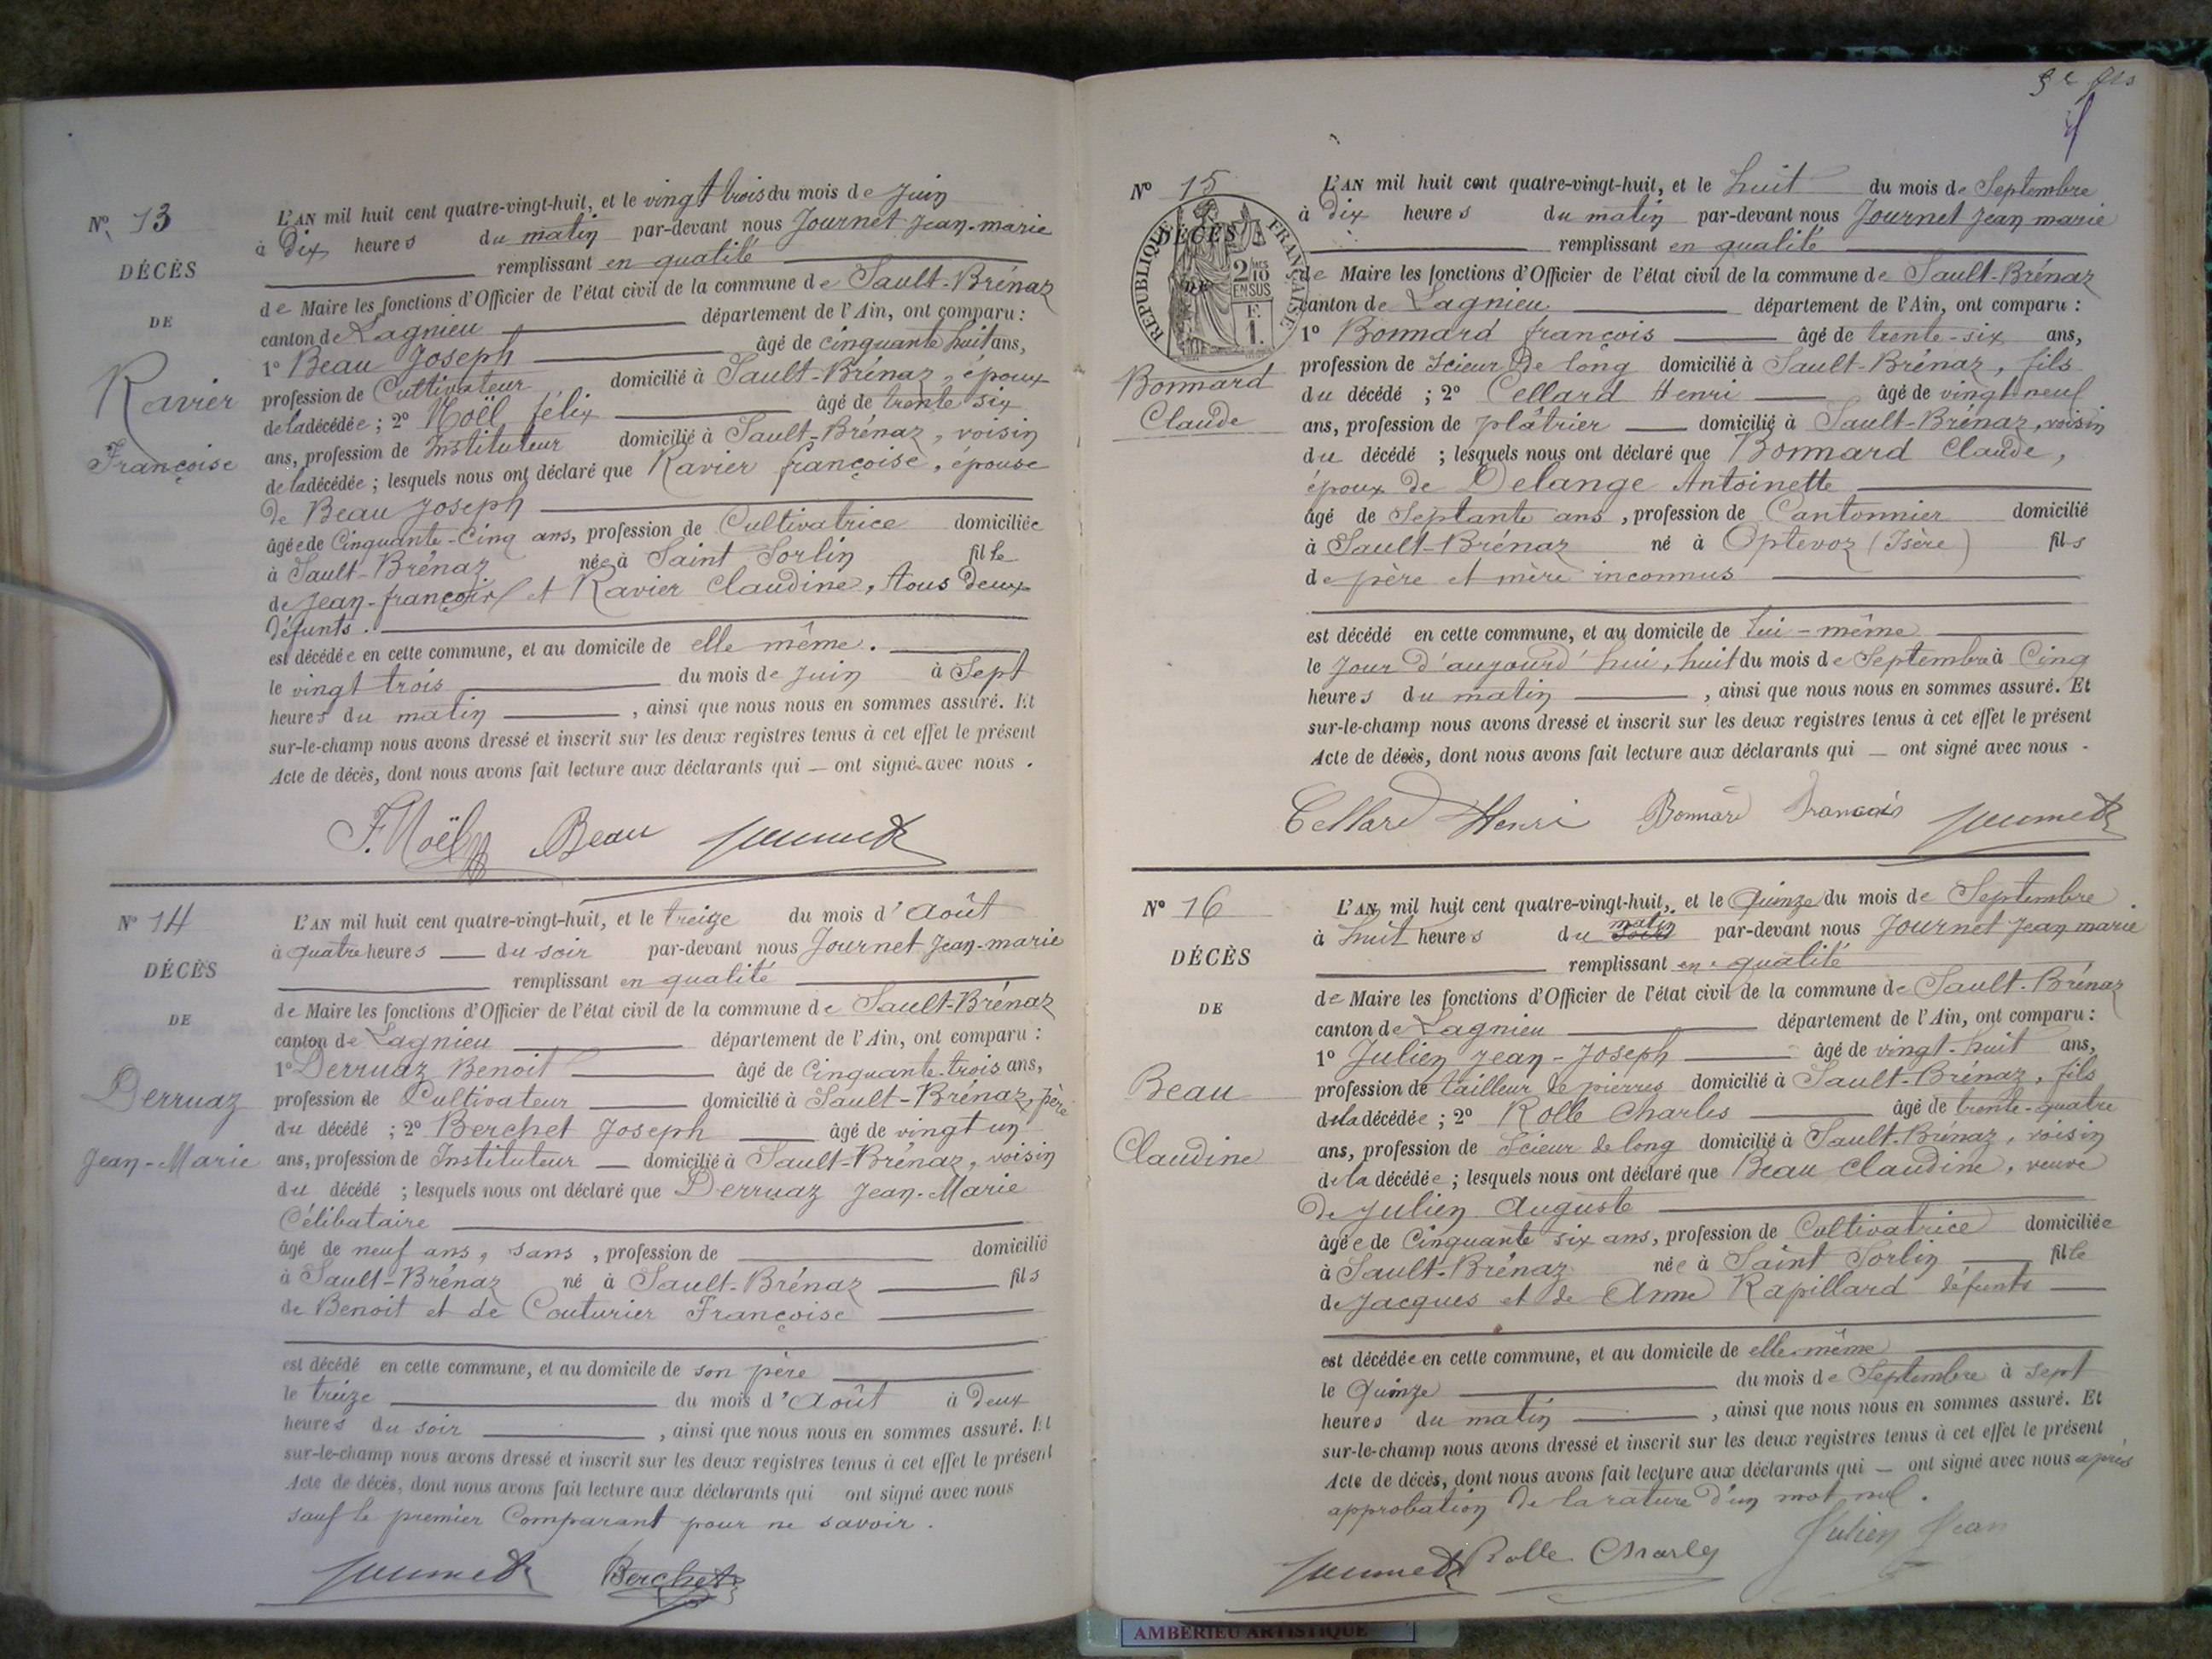 Nº 13
DÉCÈS
DE
Ravier
Françoise
L'AN mil huit cent quatre-vingt-huit, et le vingt trois du mois de Juin
à Dix heures du matin par-devant nous Journet Jean-marie
remplissant en qualité
de Maire les fonctions d'Officier de l'état civil de la commune de Sault-Brénaz
canton de Lagnieu département de l'Ain, ont comparu :
1º Beau Joseph âgé de cinquante huit ans,
profession de Cultivateur domicilié à Sault-Brénaz, époux
de la décédée ; 2º Noël félix âgé de trente six
ans, profession de Instituteur domicilié à Sault-Brénaz, voisin
de la décédée ; lesquels nous ont déclaré que Ravier françoise, épouse
de Beau Joseph
âgée de Cinquante-Cinq ans, profession de Cultivatrice domiciliée
à Sault-Brénaz née à Saint Sorlin fille
de Jean-françois et Ravier Claudine, tous deux
défunts.
est décédée en cette commune, et au domicile de elle même.
le vingt trois du mois de Juin à Sept
heures du matin , ainsi que nous nous en sommes assuré. Et
sur-le-champ nous avons dressé et inscrit sur les deux registres tenus à cet effet le présent
Acte de décès, dont nous avons fait lecture aux déclarants qui — ont signé avec nous.
F. Noël Beau Journet
Nº 14
DÉCÈS
DE
Derruaz
Jean-Marie
L'AN mil huit cent quatre-vingt-huit, et le treize du mois d'Août
à quatre heures — du soir par-devant nous Journet Jean-marie
remplissant en qualité
de Maire les fonctions d'Officier de l'état civil de la commune de Sault-Brénaz
canton de Lagnieu département de l'Ain, ont comparu :
1º Derruaz Benoit âgé de Cinquante-trois ans,
profession de Cultivateur domicilié à Sault-Brénaz, père
du décédé ; 2º Berchet Joseph âgé de vingt un
ans, profession de Instituteur — domicilié à Sault-Brénaz, voisin
du décédé ; lesquels nous ont déclaré que Derruaz Jean-Marie
Célibataire
âgé de neuf ans, sans , profession de domicilié
à Sault-Brénaz né à Sault-Brénaz fils
de Benoit et de Couturier Françoise
est décédé en cette commune, et au domicile de son père
le treize du mois d'Août à Deux
heures du soir , ainsi que nous nous en sommes assuré. Et
sur-le-champ nous avons dressé et inscrit sur les deux registres tenus à cet effet le présent
Acte de décès, dont nous avons fait lecture aux déclarants qui ont signé avec nous
sauf le premier Comparant pour ne savoir.
Journet Berchet
Nº 15
DÉCÈS
DE
RÉPUBLIQUE FRANÇAISE
2/10 EN SUS
F. 1.
Bonnard
Claude
L'AN mil huit cent quatre-vingt-huit, et le huit du mois de Septembre
à Dix heures du matin par-devant nous Journet Jean marie
remplissant en qualité
de Maire les fonctions d'Officier de l'état civil de la commune de Sault-Brénaz
canton de Lagnieu département de l'Ain, ont comparu :
1º Bonnard françois âgé de trente-six ans,
profession de Scieur De long domicilié à Sault-Brénaz, fils
du décédé ; 2º Cellard Henri âgé de vingt-neuf
ans, profession de plâtrier — domicilié à Sault-Brénaz, voisin
du décédé ; lesquels nous ont déclaré que Bonnard Claude,
époux de Delange Antoinette
âgé de Septante ans , profession de Cantonnier domicilié
à Sault-Brénaz né à Optevoz (Isère) fils
de père et mère inconnus
est décédé en cette commune, et au domicile de lui-même
le Jour d'aujourd'hui, huit du mois de Septembre à Cinq
heures du matin , ainsi que nous nous en sommes assuré. Et
sur-le-champ nous avons dressé et inscrit sur les deux registres tenus à cet effet le présent
Acte de décès, dont nous avons fait lecture aux déclarants qui — ont signé avec nous -
Cellard Henri Bonnard François Journet
Nº 16
DÉCÈS
DE
Beau
Claudine
L'AN mil huit cent quatre-vingt-huit, et le Quinze du mois de Septembre
à huit heures du matin soir par-devant nous Journet Jean marie
remplissant en qualité
de Maire les fonctions d'Officier de l'état civil de la commune de Sault-Brénaz
canton de Lagnieu département de l'Ain, ont comparu :
1º Julien Jean-Joseph âgé de vingt-huit ans,
profession de tailleur de pierres domicilié à Sault-Brénaz, fils
de la décédée ; 2º Rolle Charles âgé de trente-quatre
ans, profession de Scieur de long domicilié à Sault-Brénaz, voisin
de la décédée ; lesquels nous ont déclaré que Beau Claudine, veuve
De Julien Auguste
âgée de Cinquante six ans, profession de Cultivatrice domiciliée
à Sault-Brénaz née à Saint Sorlin fille
de Jacques et de Anne Rapillard défunts
est décédée en cette commune, et au domicile de elle même
le Quinze du mois de Septembre à sept
heures du matin , ainsi que nous nous en sommes assuré. Et
sur-le-champ nous avons dressé et inscrit sur les deux registres tenus à cet effet le présent
Acte de décès, dont nous avons fait lecture aux déclarants qui — ont signé avec nous après
approbation de la rature d'un mot nul.
Journet Rolle Charles Julien Jean
AMBERIEU ARTISTIQUE